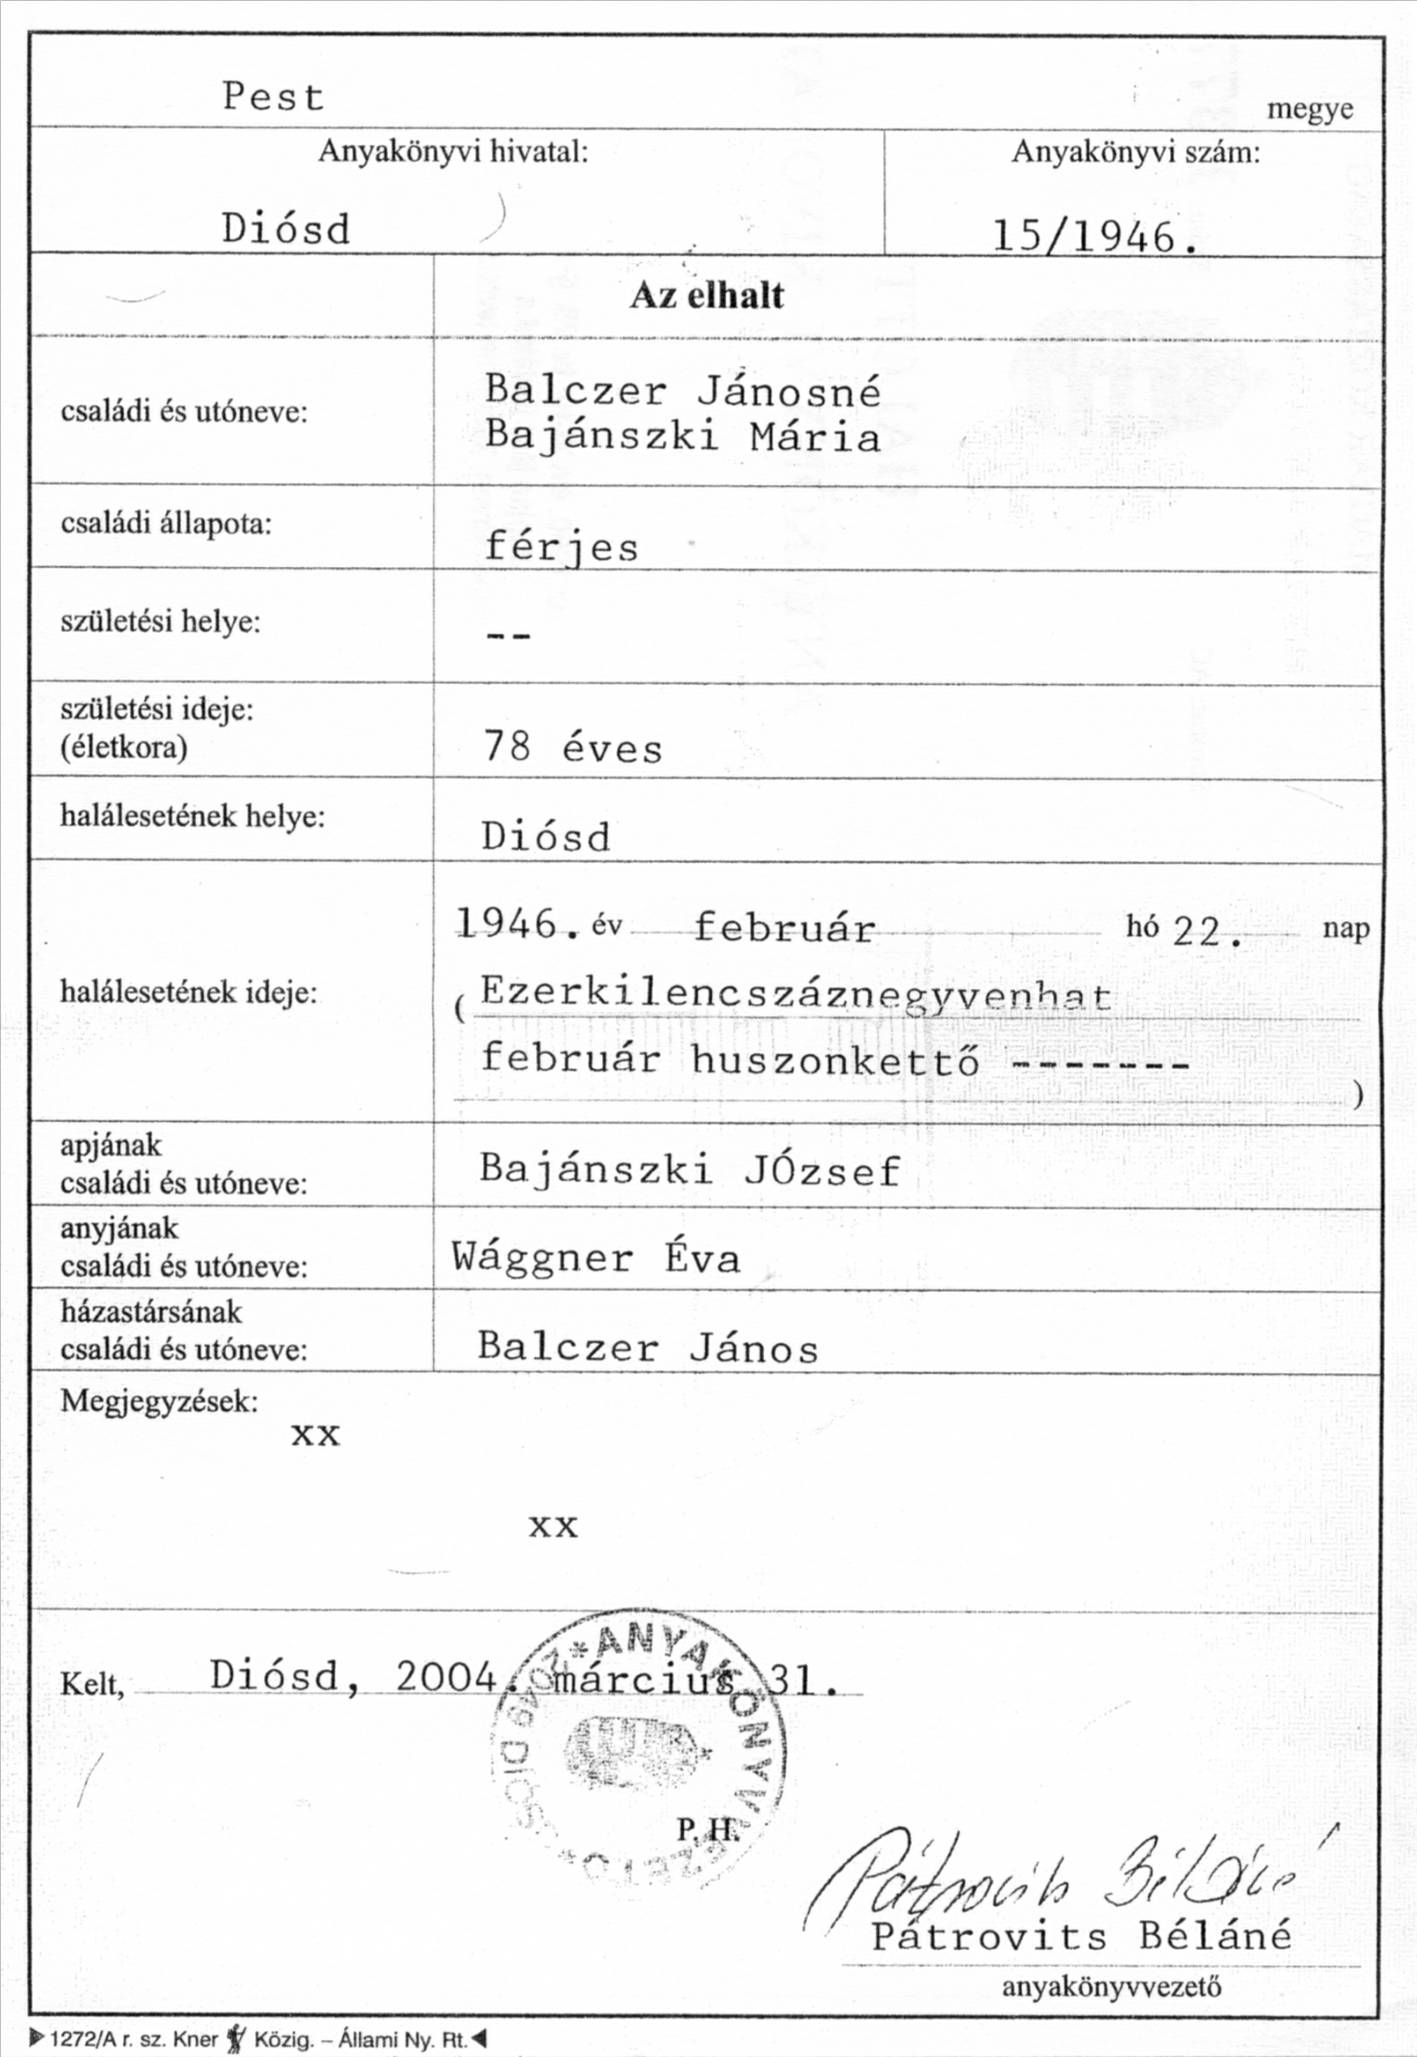 Pest
megye
Anyakönyvi hivatal:
Anyakönyvi szám:
Diósd
15/1946.
Az elhalt
családi és utóneve:
Balczer Jánosné
Bajánszki Mária
családi állapota:
férjes
születési helye:
--
születési ideje:
(életkora)
78 éves
halálesetének helye:
Diósd
halálesetének ideje:
1946. év február hó 22. nap
( Ezerkilencszáznegyvenhat
február huszonkettő -------
)
apjának
családi és utóneve:
Bajánszki JÓzsef
anyjának
családi és utóneve:
Wággner Éva
házastársának
családi és utóneve:
Balczer János
Megjegyzések:
xx
xx
Kelt, Diósd, 2004. március 31.
*ANYAKÖNYVVEZETŐ*
2049 DIÓSD
P. H.
Pátrovits Béláné
Pátrovits Béláné
anyakönyvvezető
1272/A r. sz. Kner Közig. – Állami Ny. Rt.